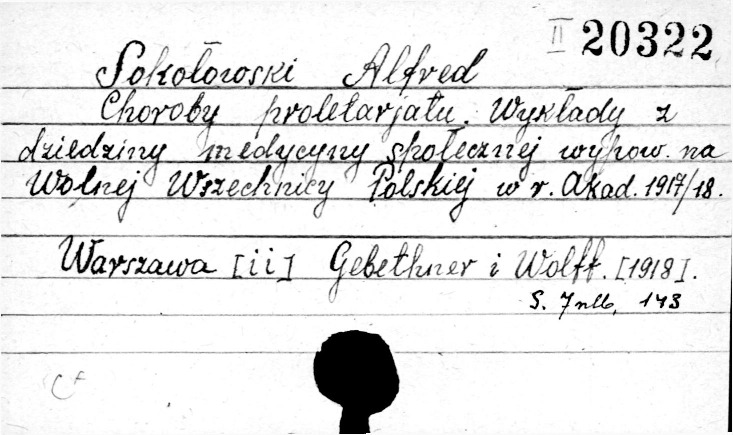 II 20322
Sokołowski Alfred
Choroby proletarjatu. Wykłady z
dziedziny medycyny społecznej wypow. na
Wolnej Wszechnicy Polskiej w r. Akad. 1917/18.
Warszawa [ii] Gebethner i Wolff. [1918].
S. 7 nlb, 143